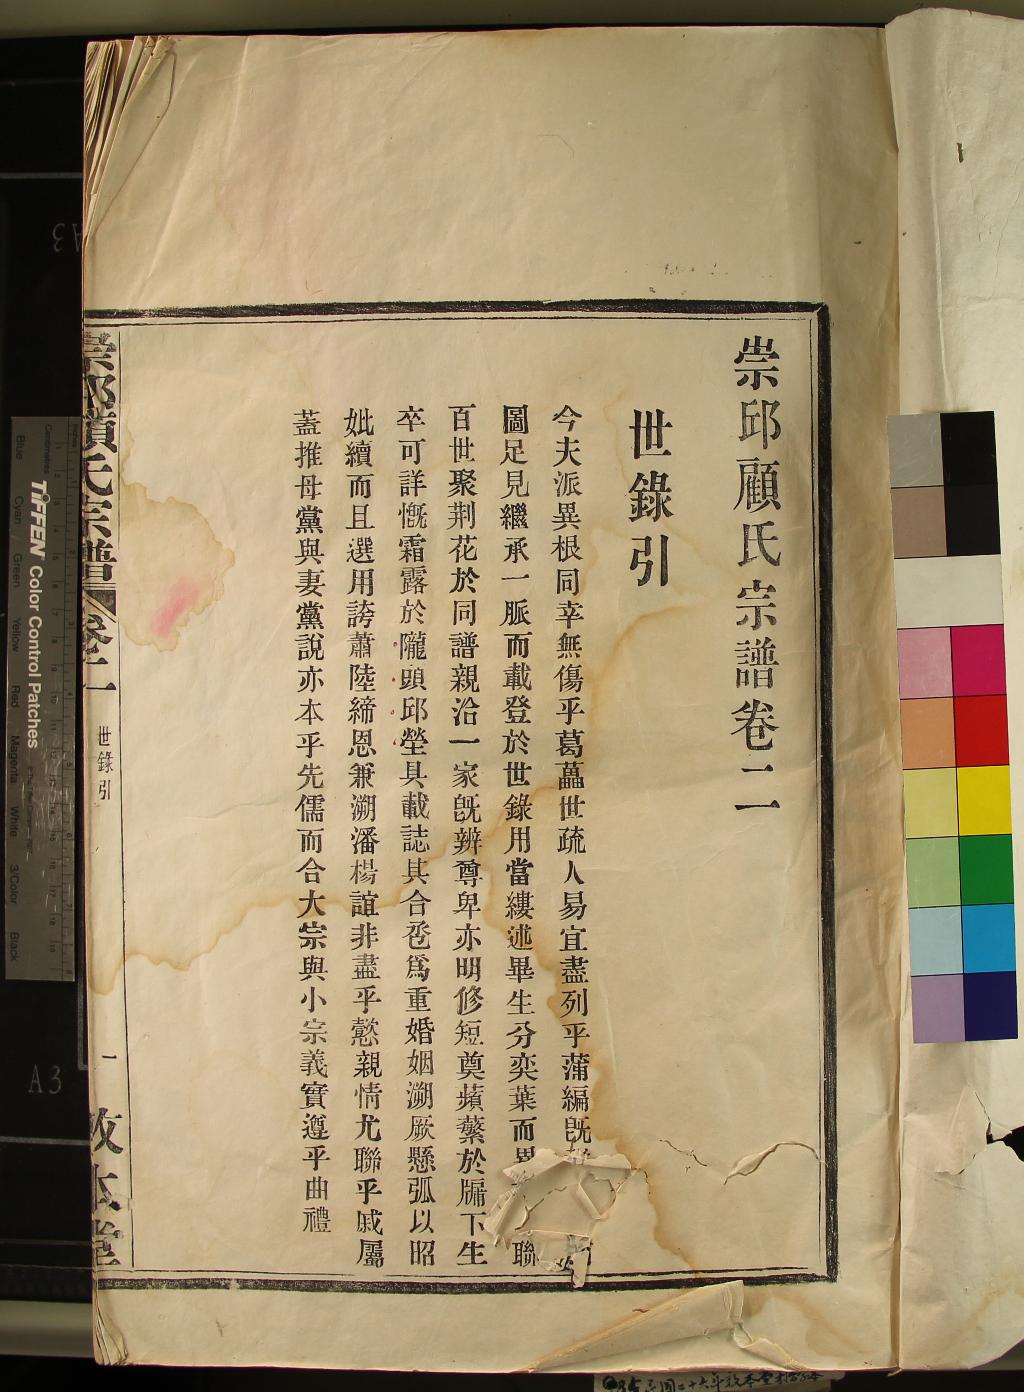 崇邱顧氏宗譜卷二
世錄引
今夫派異根同幸無傷乎葛藟世疏人易宜盡列乎蒲編旣
圖足見繼承一脈而載登於世錄用當縷述畢生分奕葉而 聯
百世聚荆花於同譜親洽一家旣辨尊卑亦明修短奠蘋蘩於牖下生
卒可詳慨霜露於隴頭邱塋具載誌其合卺爲重婚姻溯厥懸弧以昭
妣續而且選用誇蕭陸締恩兼溯潘楊誼非盡乎懿親情尤聯乎戚屬
蓋推母黨與妻黨說亦本乎先儒而合大宗與小宗義實遵乎曲禮
崇邱顧氏宗譜 卷二 世錄引 一 敦本堂
TIFFEN Color Control Patches
Blue Cyan Green Yellow Red Magenta White 3/Color Black
Centimetres
A3
A3